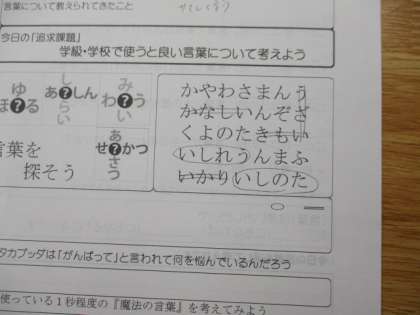 言葉について教えられてきたこと
今日の「追求課題」
学級・学校で使うと良い言葉について考えよう
ゆ
ほ?る
し
あ?しん
らい
み
わ?う
い
あ
せ?かつ
さ
う
言葉を
探そう
かやわさまんう
かなしいんぞざ
くよのたきもい
いしれうんまふ
いかりいしのた
タカブッダは「がんばって」と言われて何を悩んでいるんだろう
使っている１秒程度の『魔法の言葉』を考えてみよう